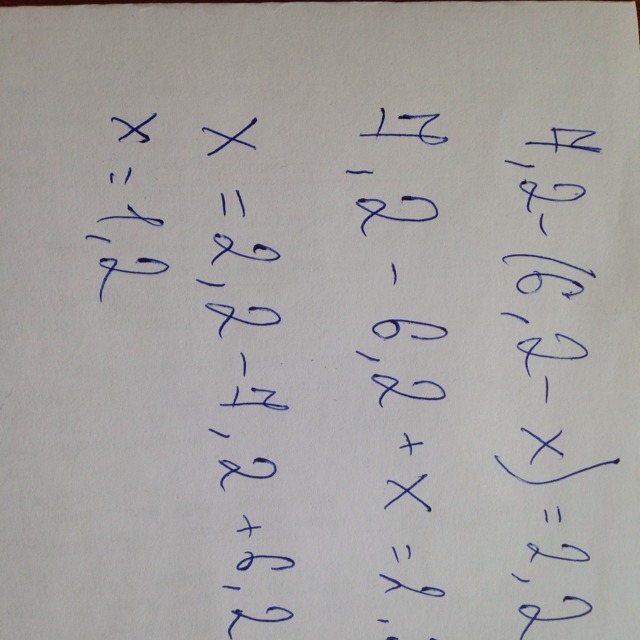 7,2-(6,2-x)=2,2
7,2-6,2+x=2,
x=2,2-7,2+6,2
x=1,2